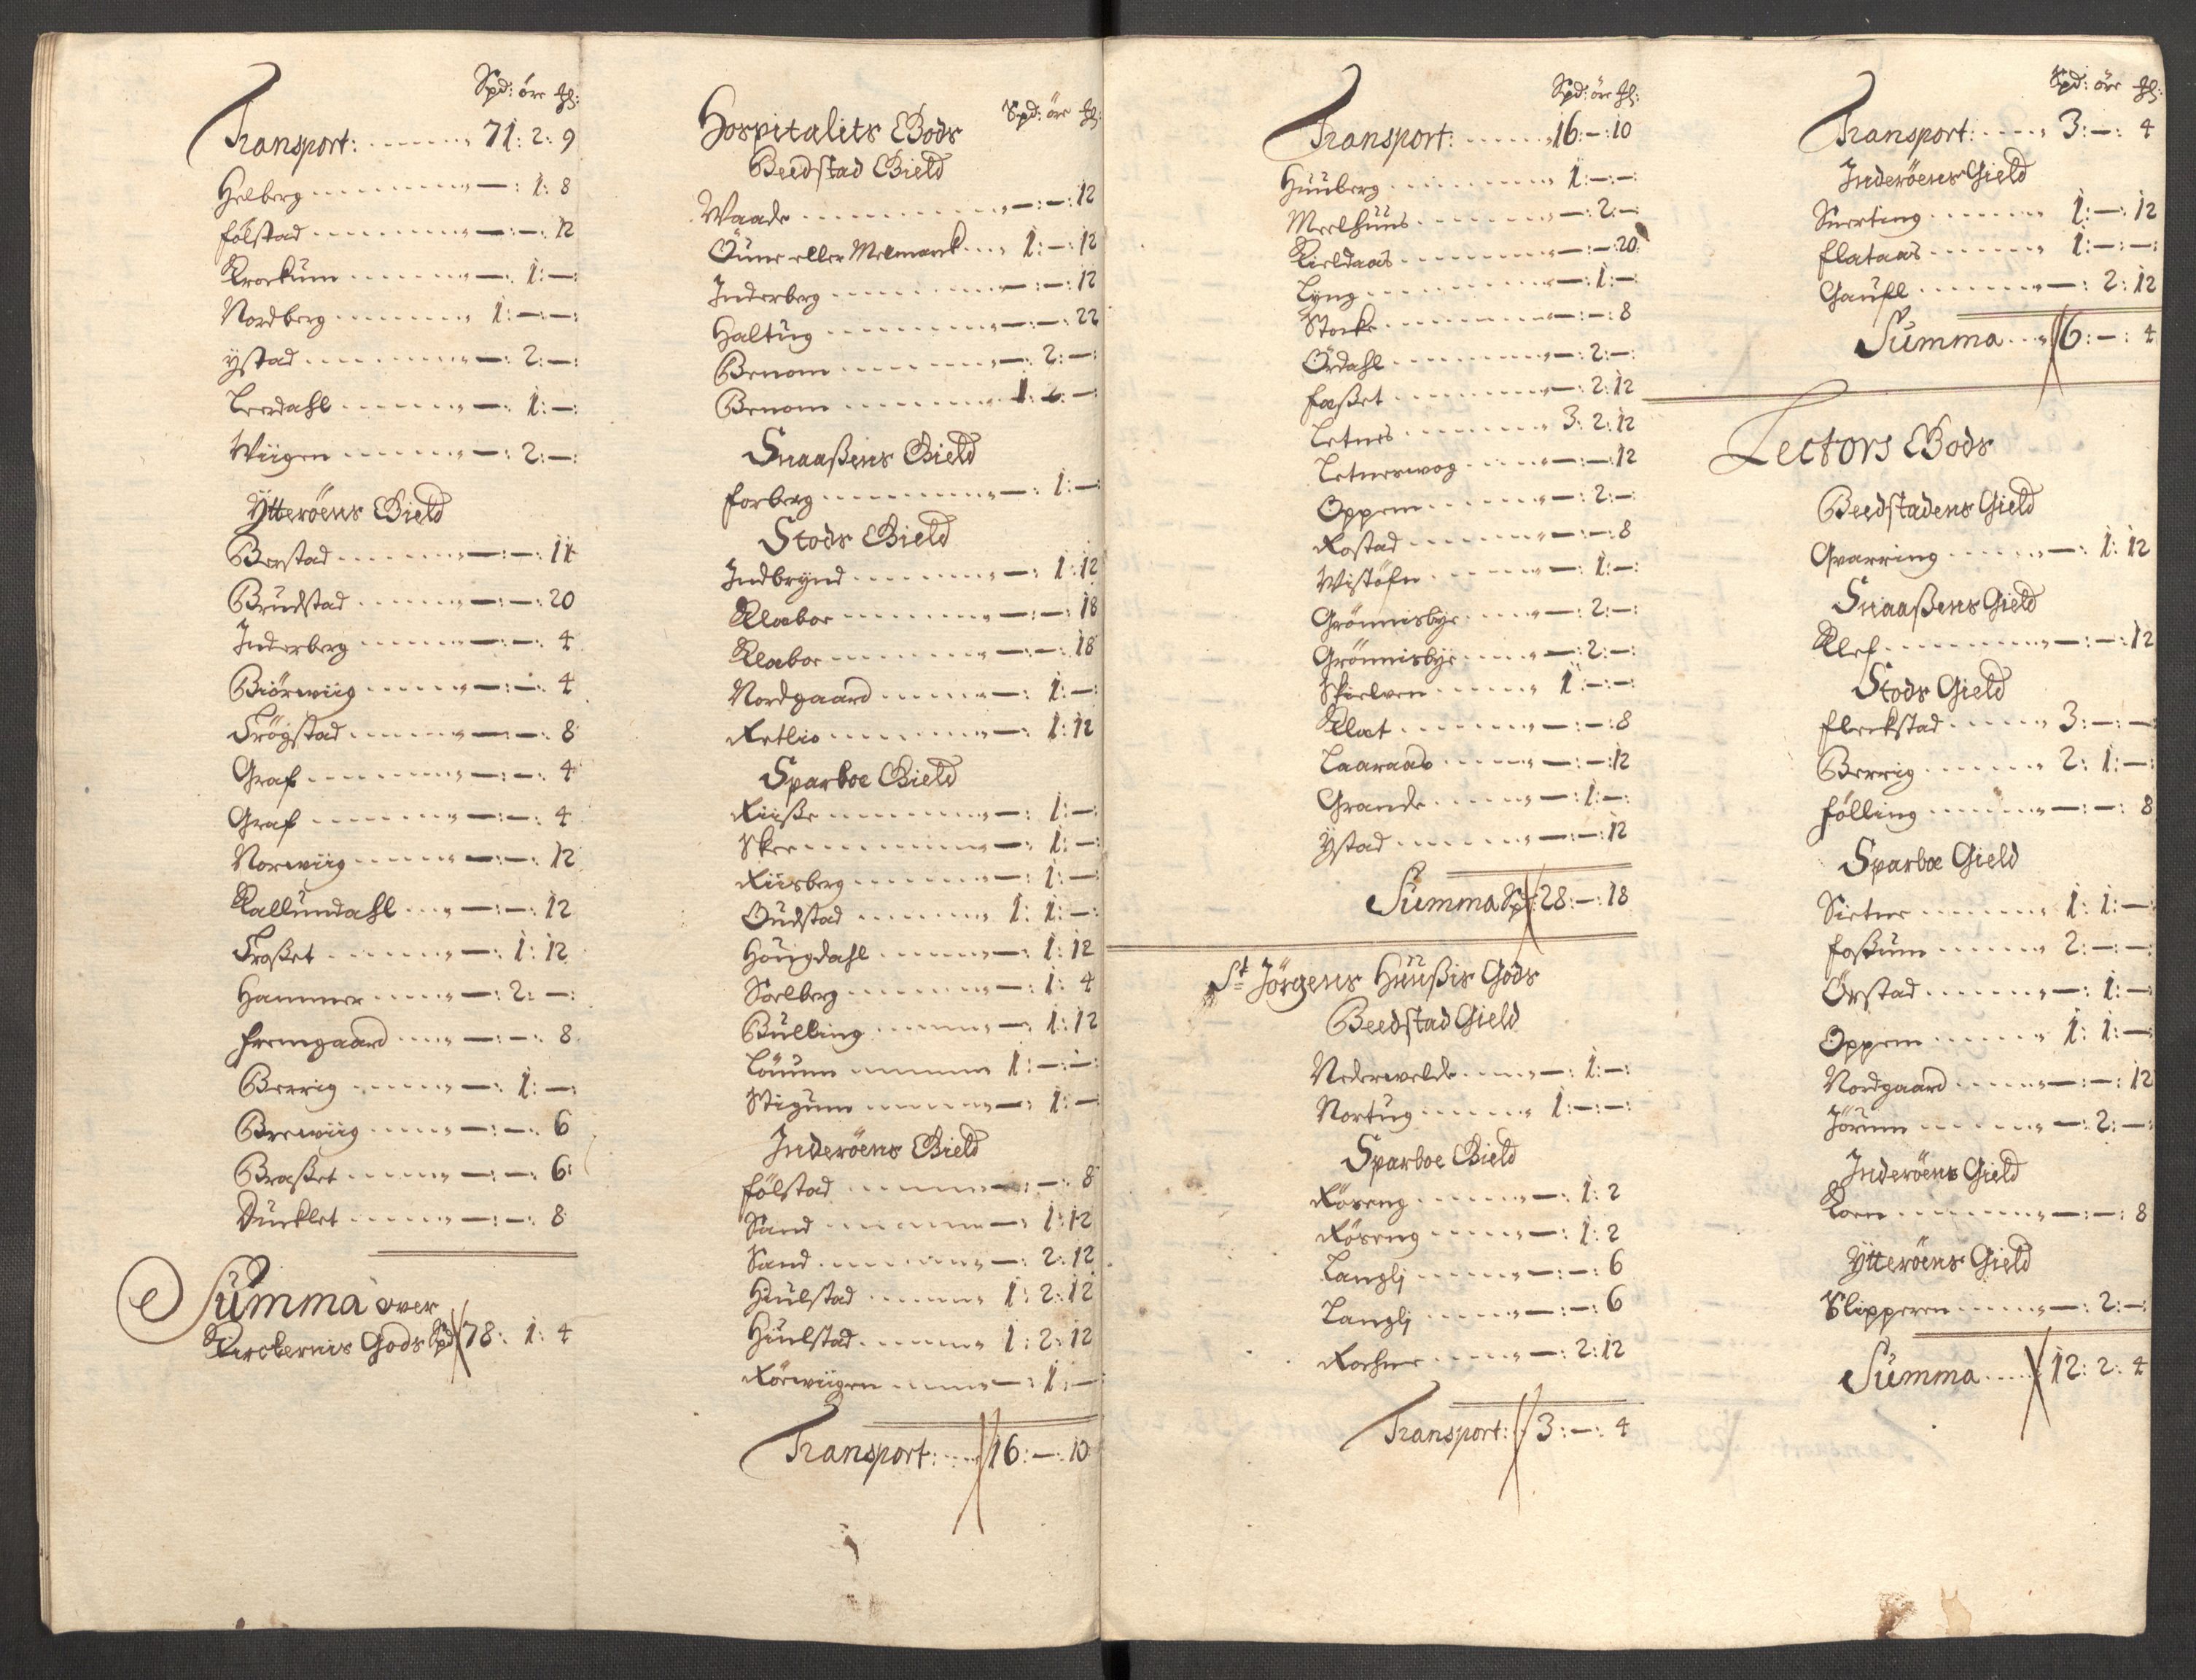 Spd: öre
Transport: 71: 2: 9
Helberg —: 1: 8
Følstad —:—: 12
Krockum —: 1:—:
Nordberg 1:—:—:
Ystad —: 2:—:
Leerdahl —: 1:—:
Wiigen —: 2:—:
Ytterøens Gield
Berstad —:—: 11
Brudstad —:—: 20
Inderberg —:—: 4
Biörwiig —:—: 4
Trögstad —:—: 8
Graf —:—: 4
Graf —:—: 4
Norwiig —:—: 12
Kallundahl —:—: 12
Troßet —: 1: 12
Hammer —: 2:—:
Fremgaard —:—: 8
Berrig —: 1:—:
Brewiig —:—: 6
Braßet —:—: 6
Duncklet —:—: 8
Summa over
Kirckernis Gods Spd 78: 1: 4
Hospitalits Gods Spd: öre
Beedstad Gield
Waade —:—: 12
Öune eller Melmarck 1:—: 12
Inderberg —:—: 12
Haltug —:—: 22
Benom —: 2:—:
Benom 1: 2:—:
Snaaßens Gield
Forberg —: 1:—:
Stods Gield
Indbrynd —: 1: 12
Klaboe —:—: 18
Klaboe —:—: 18
Nordgaard —: 1:—:
Retlio —: 1: 12
Sparboe Gield
Riiße —: 1:—:
Skee —: 1:—:
Riisberg —: 1:—:
Oudstad 1: 1:—:
Hougdahl —: 1: 12
Soelberg —: 1: 4
Bulling —: 1: 12
Löuum 1:—:—:
Stigum —: 1:—:
Inderøens Gield
Følstad —:—: 8
Sand —: 1: 12
Sand —: 2: 12
Hiulstad 1: 2: 12
Hiulstad 1: 2: 12
Rörwiigen —: 1:—:
Transport: 16:—: 10
Spd: öre
Transport: 16:—: 10
Huuberg 1:—:—:
Meelhuus —: 2:—:
Kieldaas —:—: 20:
Lyng —: 1:—:
Stocke —:—: 8
Ördahl —: 2:—:
Faßet —: 2: 12
Letnes 3: 2: 12
Letneswog —:—: 12
Oppem —: 2:—:
Rostad —:—: 8
Wistöfn —: 1:—:
Grönnisbye —: 2:—:
Grönnisbye —: 2:—:
Skielven 1:—:—:
Klat —:—: 8
Laaraas —:—: 12
Grande —: 1:—:
Ystad —:—: 12
Summa Spd 28:—: 18
St Jörgens Huußis Gods
Beedstad Gield
Nederwelde —: 1:—:
Nortug 1:—:—:
Sparboe Gield
Röseng —: 1: 2
Röseng —: 1: 2
Langlj —:—: 6
Langlj —:—: 6
Rochne —: 2: 12
Transport: 3:—: 4
Spd: öre
Transport: 3:—: 4
Inderøens Gield
Snerting 1:—: 12
Flataas 1:—:—:
Gaufl —: 2: 12
Summa 6:—: 4
Lectors Gods
Beedstadens Gield
Qvarring —: 1: 12
Snaaßens Gield
Klef —:—: 12
Stods Gield
Fleckstad 3:—:—
Berrig 2: 1:—:
Følling —:—: 8
Sparboe Gield
Sietne 1: 1:—
Foßum 2:—:—:
Örstad —: 1:—
Oppem 1: 1:—
Nordgaard —:—: 12
Jörum —: 2:—:
Inderøens Gield
Korn —:—: 8
Ytterøens Gield
Slipperen —: 2:—:
Summa 12: 2: 4